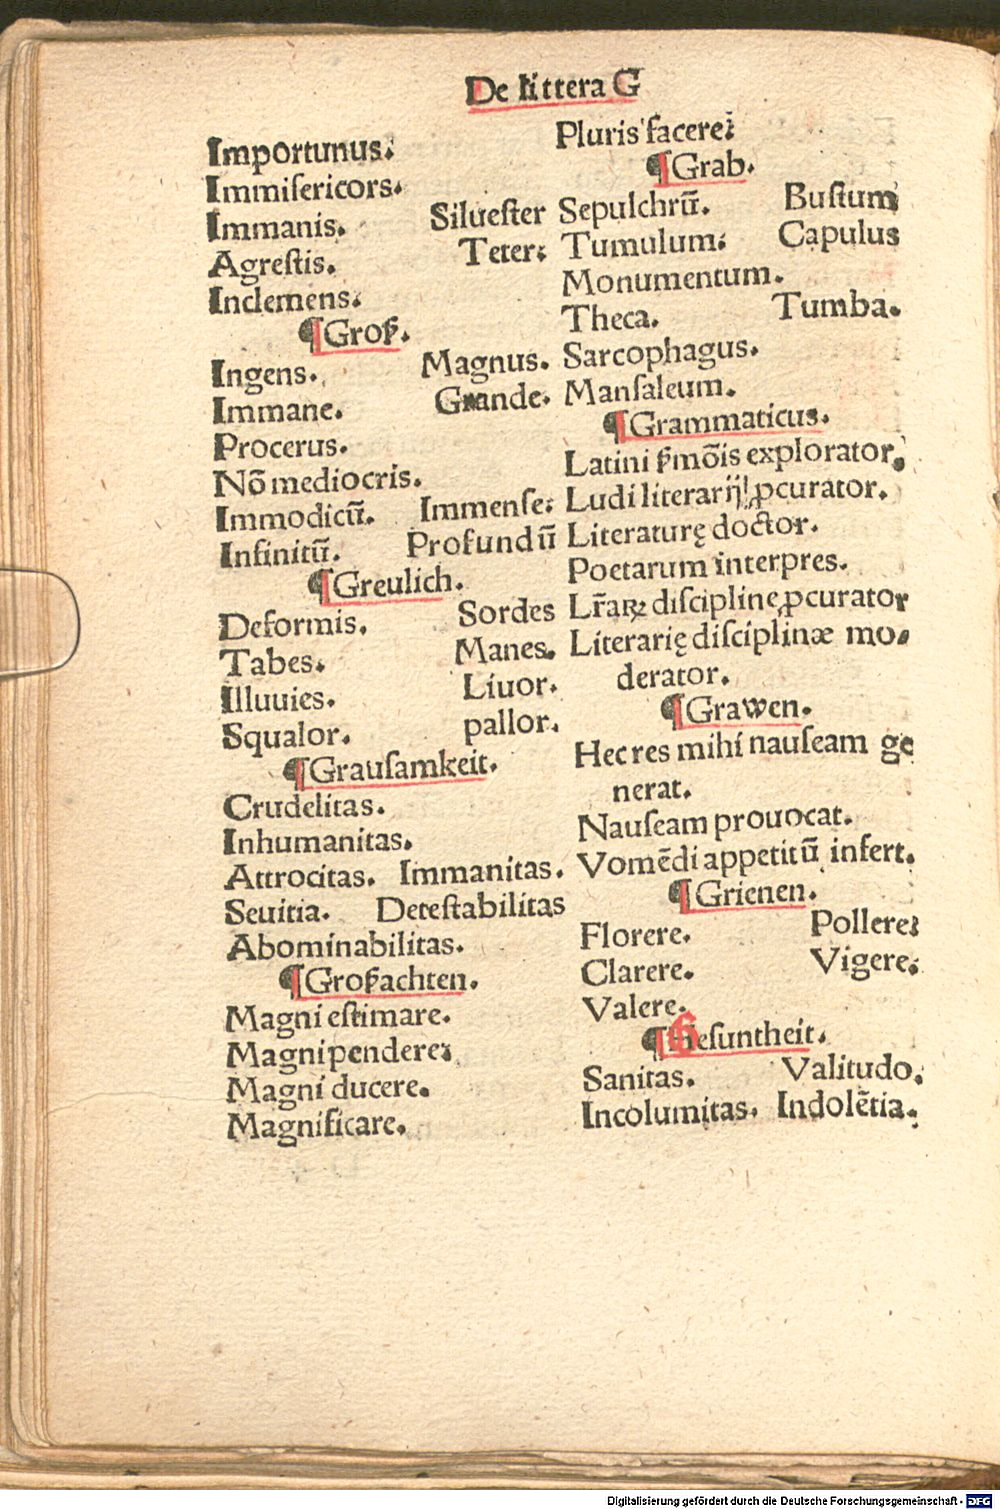 De littera G
Importunus.
Immiſericors.
Immanis. Silueſter
Agreſtis. Teter:
Inclemens.
¶Groß.
Ingens. Magnus.
Immane. Grande.
Procerus.
Nō mediocris.
Immodicū. Immenſe:
Infinitū. Profundū
¶Greulich.
Deformis. Sordes
Tabes. Manes.
Illuuies. Liuor.
Squalor. pallor.
¶Grauſamkeit.
Crudelitas.
Inhumanitas.
Attrocitas. Immanitas.
Seuitia. Deteſtabilitas
Abominabilitas.
¶Großachten.
Magni eſtimare.
Magnipendere:
Magni ducere.
Magnificare.
Pluris facere:
¶Grab.
Sepulchrū. Buſtum
Tumulum: Capulus
Monumentum.
Theca. Tumba.
Sarcophagus.
Manſaleum.
¶Grammaticus.
Latini ẜmōis explorator,
Ludi literarij ꝓcurator.
Literaturę doctor.
Poetarum interpres.
Lr̄aꝝ diſcipline ꝓcurator
Literarię diſciplinæ mo-
derator.
¶Grawen.
Hec res mihi nauſeam ge
nerat.
Nauſeam prouocat.
Vomēdi appetitū infert.
¶Grienen.
Florere. Pollere:
Clarere. Vigere:
Valere.
¶Geſuntheit.
Sanitas. Valitudo.
Incolumitas. Indolētia.
Digitalisierung gefördert durch die Deutsche Forschungsgemeinschaft - DFG